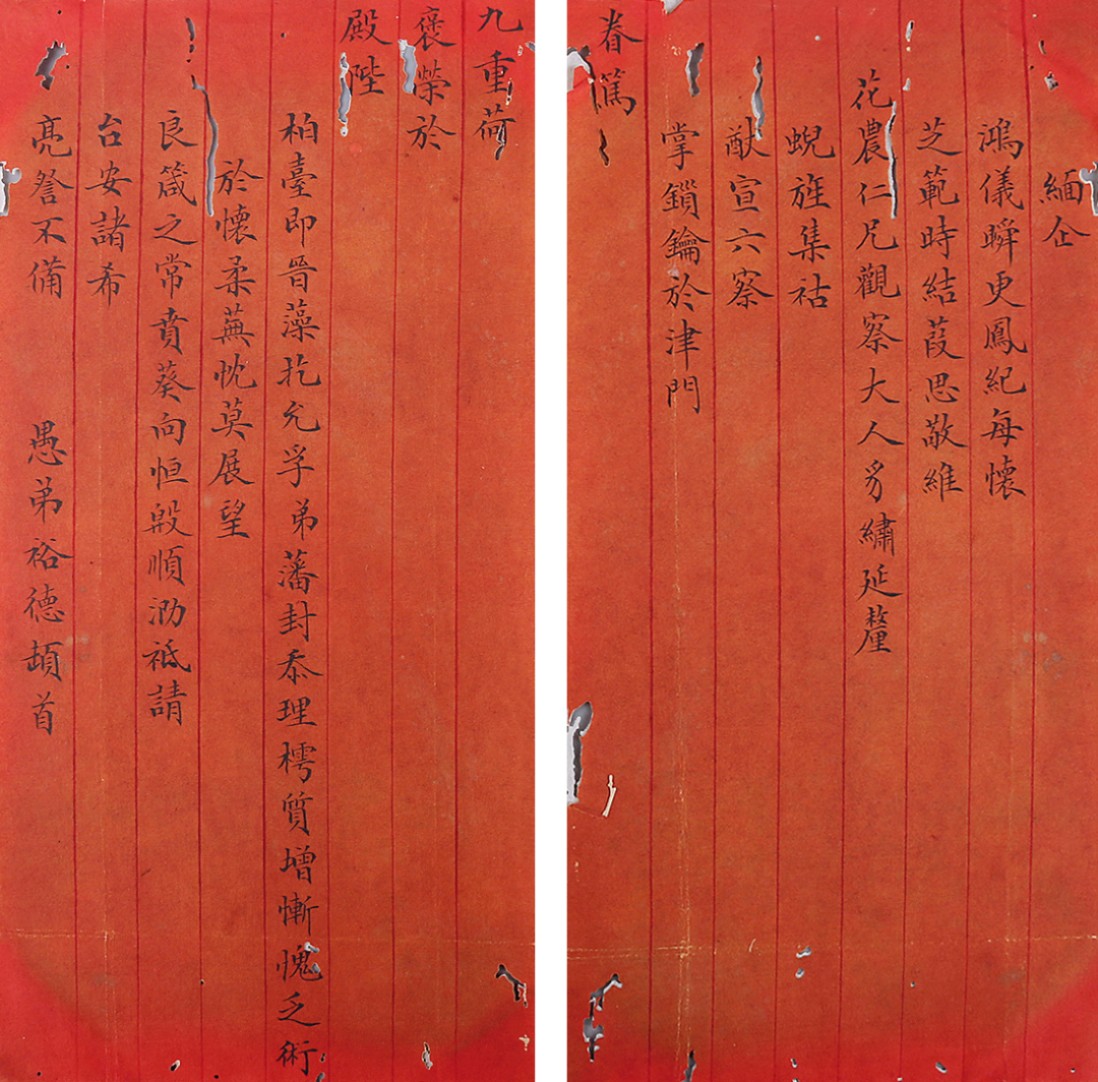 緬企
鴻儀瞬更鳳紀每懷
芝範時結葭思敬維
花農仁兄觀察大人豸繡延釐
蜺旌集祜
猷宣六察
掌鎖鑰於津門
眷篤
九重荷
褒榮於
殿陛
柏臺即晉藻抃允孚弟藩封忝理樗質增慚愧乏術
於懷柔蕪忱莫展望
良箴之常賁葵向恒殷順泐祗請
台安諸希
亮詧不備　愚弟裕德頓首